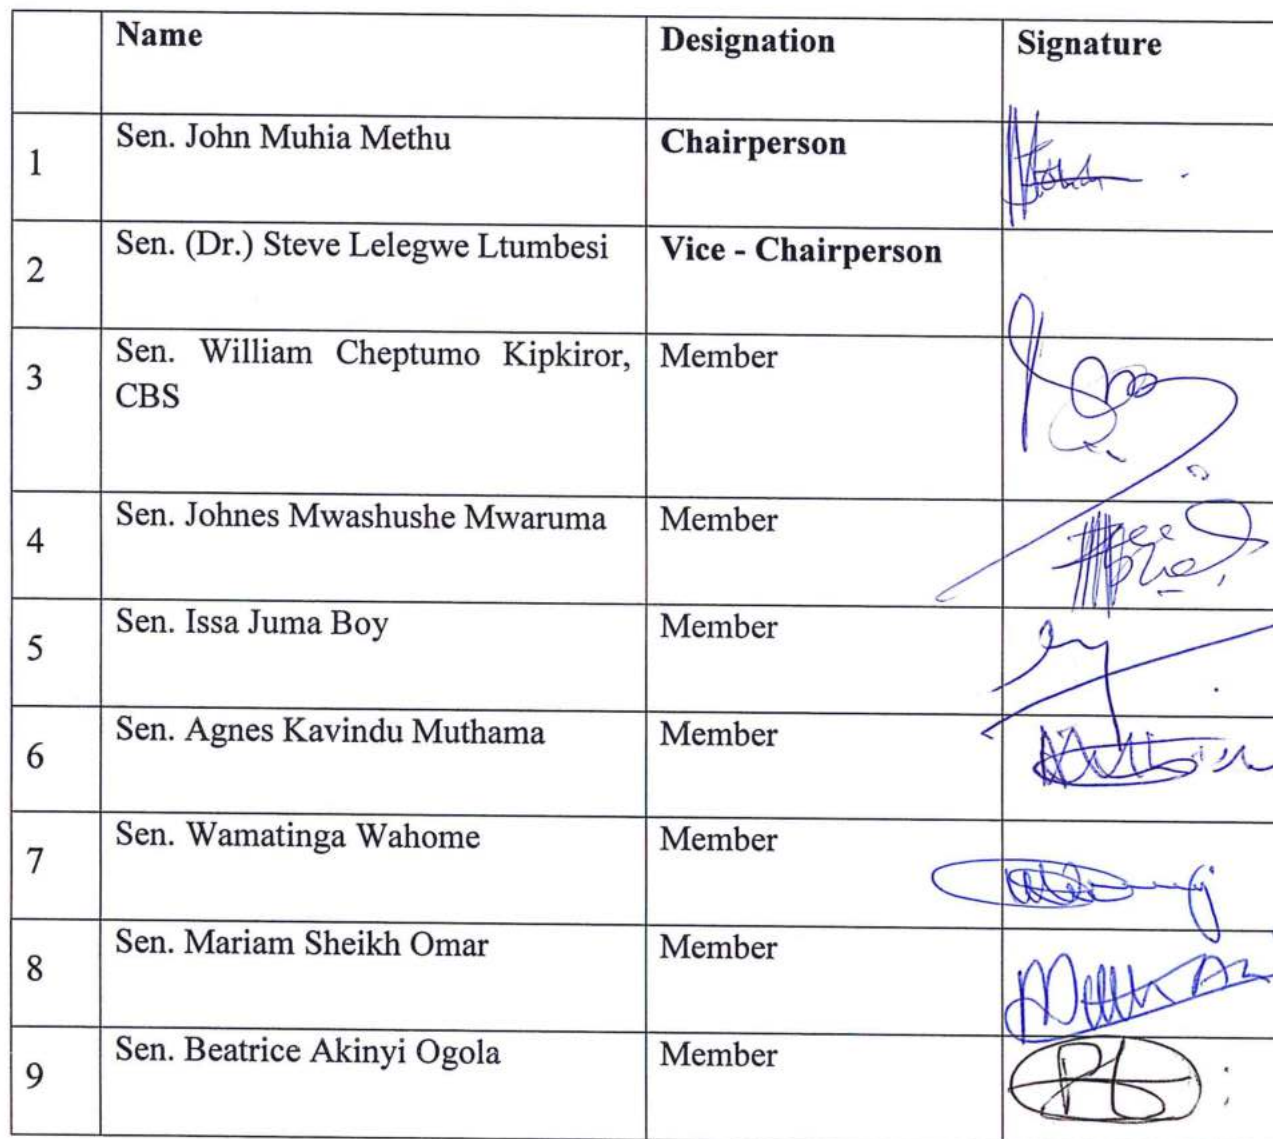 Name Designation Signature
1 Sen. John Muhia Methu Chairperson
2 Sen. (Dr.) Steve Lelegwe Ltumbesi Vice - Chairperson
3 Sen. William Cheptumo Kipkiror, Member
CBS
4 Sen. Johnes Mwashushe Mwaruma Member
5 Sen. Issa Juma Boy Member
6 Sen. Agnes Kavindu Muthama Member
7 Sen. Wamatinga Wahome Member
8 Sen. Mariam Sheikh Omar Member
9 Sen. Beatrice Akinyi Ogola Member